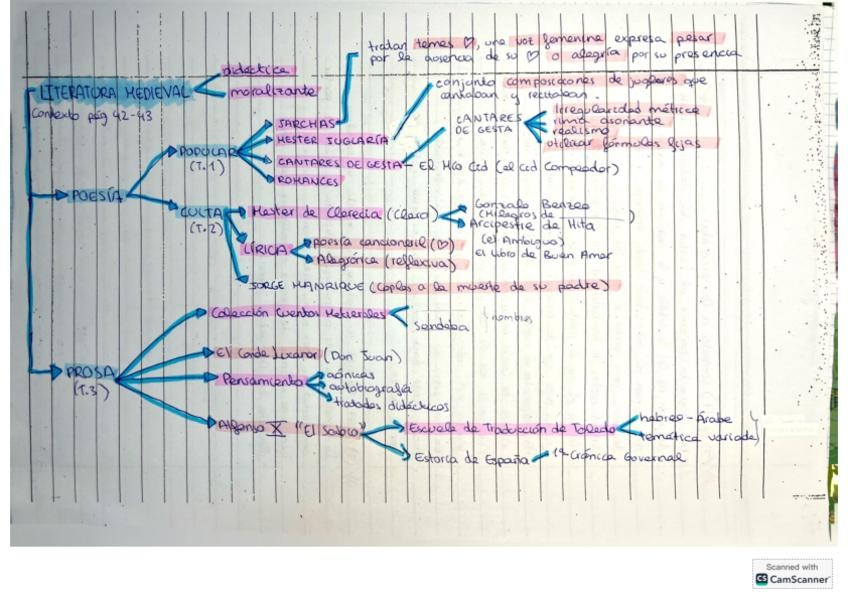 tratan temes ♡, una voz femenina expresa pesar
por la ausencia de su ♡ o alegría por su presencia
LITERATURA MEDIEVAL
didáctica
moralizante
Contexto pág 42-43
conjunto composiciones de juglares que
cantaban y recitaban.
CANTARES
DE GESTA
Irregularidad métrica
rima asonante
realismo
utilizar fórmulas fijas
POESÍA
POPULAR
(T.1)
JARCHAS
MESTER JUGLARÍA
CANTARES DE GESTA - El Mío Cid (el Cid Campeador)
ROMANCES
CULTA
(T.2)
Mester de Clerecía (Clero)
Gonzalo Berzeo
(Milagros de )
Arcipestre de Hita
(el Ambiguo)
El Libro de Buen Amor
LÍRICA
Poesía cancioneril (♡)
Alegórica (reflexiva)
JORGE MANRIQUE (Coplas a la muerte de su padre)
PROSA
(T.3)
Colección Cuentos Medievales
Sendeba
nombres
El Conde Lucanor (Don Juan)
Pensamiento
crónicas
autobiografía
tratados didácticos
Alfonso X "El Sabio"
Escuela de Traducción de Toledo
hebreo-Árabe
temática variada
Estoria de España
1ª Crónica Governal
Scanned with
CS CamScanner